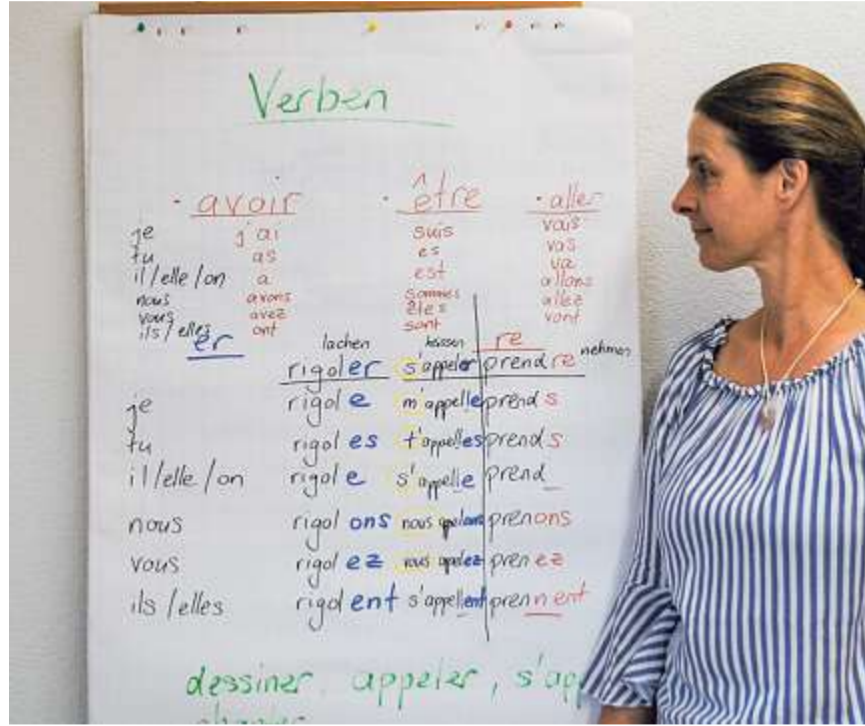 Verben
· avoir · être · aller
je j'ai suis vais
tu as es vas
il/elle/on a est va
nous avons sommes allons
vous avez êtes allez
ils/elles ont sont vont
er lachen heissen re nehmen
rigoler s'appeler prendre
je rigole m'appelle prends
tu rigoles t'appelles prends
il/elle/on rigole s'appelle prend_
nous rigolons nous prenons
vous rigolez vous prenez
ils/elles rigolent s'appellent prennent
dessiner, appeler, s'app